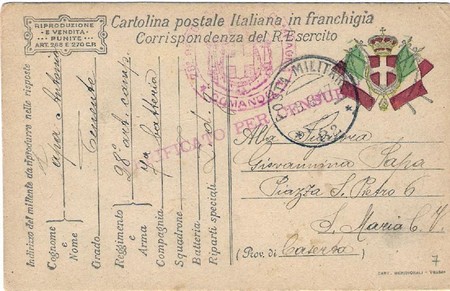 RIPRODUZIONE
E VENDITA
PUNITE
ART. 256 E 270 C.P.
Cartolina postale Italiana in franchigia
Corrispondenza del R. Esercito
COMANDO
POSTA MILITARE
VERIFICATO PER CENSURA
Indirizzo del mittente da riprodurre nelle risposte
Cognome
e
Nome
Grado
Reggimento
e
Arma
Compagnia
Squadrone
Batteria
Riparti speciali
Sapa Antonio
Tenente
28º art. camp.
7a batteria
Alla Signora
Giovannina Sapa
Piazza S. Pietro 6
S. Maria C. V.
(Prov. di Caserta)
7